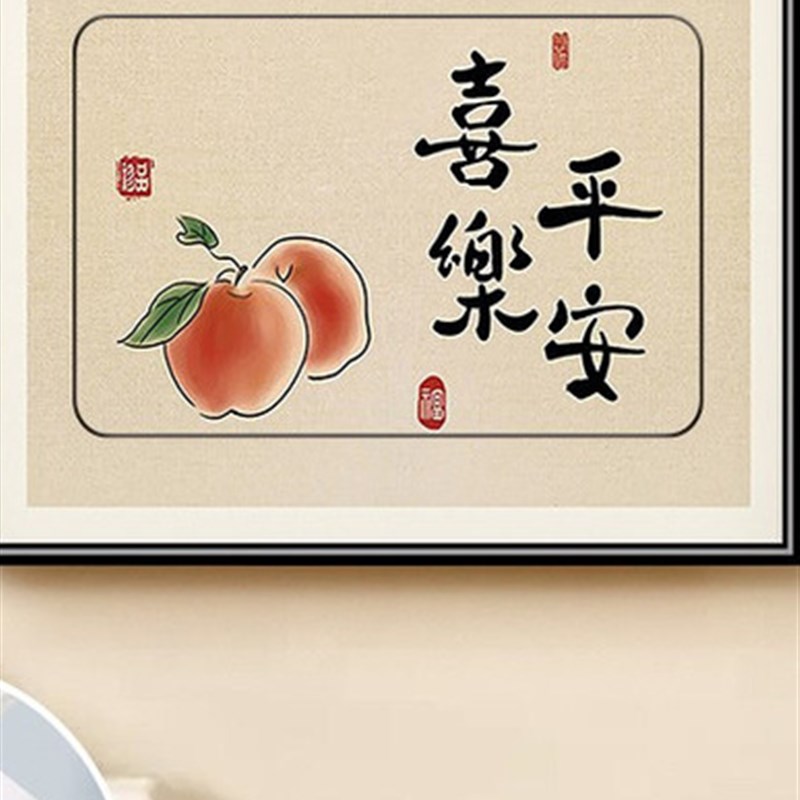 平安
喜樂
福